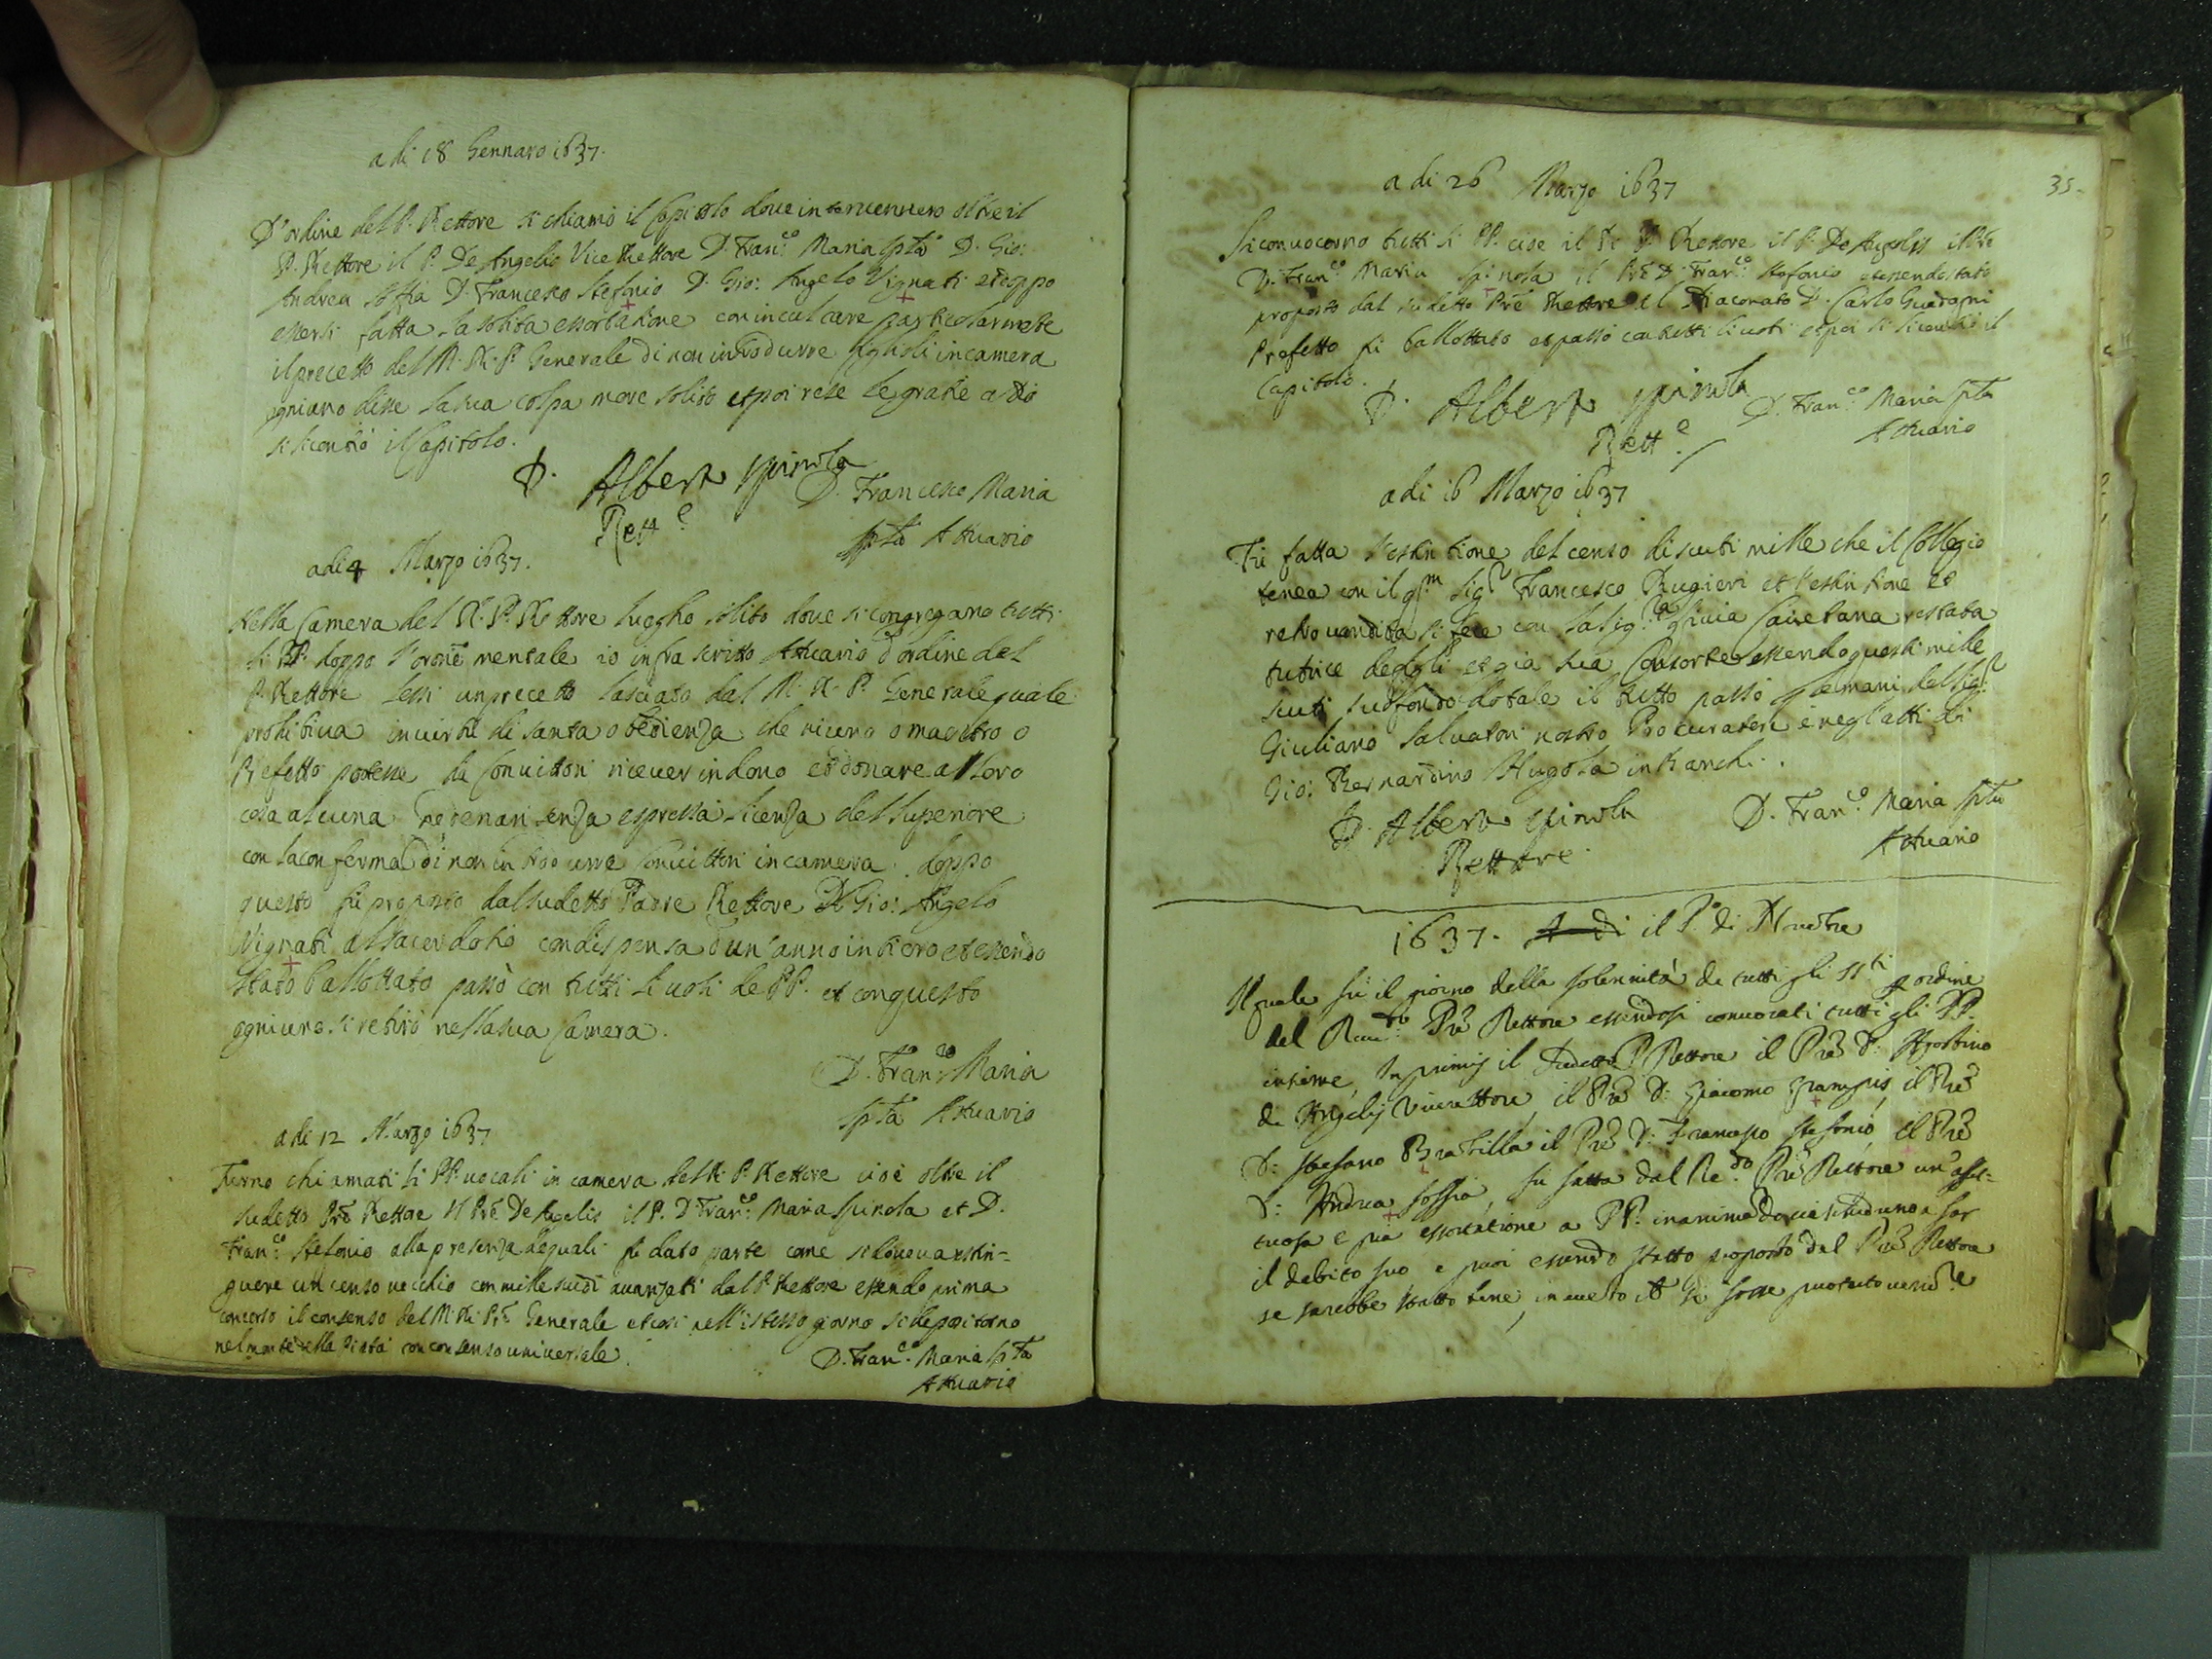 a di 18 Gennaro 1637.
D'ordine del P. Rettore si chiamò il Capitolo doue interuennero oltre il
P. Rettore il P. De Angelis Vice Rettore D. Fran.co Maria Sp.la D. Gio:
Andrea Soffia D. Francesco Stefonio D. Gio: Angelo Vignati et doppo
essersi fatta la solita essortatione con inculcare particolarmete
il precetto del M. R. P. Generale di non introdurre figlioli in camera
ogniuno disse la sua colpa more solito et poi rese le gratie a Dio
si licentiò il Capitolo.
D. Alberto Spinola
Rett.e
D. Francesco Maria
Sp.la Attuario
adi 4 Marzo 1637.
Nella Camera del R. P. Rettore luogho solito doue si congregano tutti
li PP. doppo l'orõne mentale io infrascritto Attuario d'ordine del
P. Rettore lessi un precetto lasciato dal M. R. P. Generale quale
prohibiua in uirtù di santa obedienza che niuno o maestro o
Prefetto potesse da Conuittori riceuer in dono et donare a loro
cosa alcuna ne denari senza espressa licenza del Superiore
con la conferma di non introdurre Conuittori in camera. doppo
questo fù proposto dal sudetto Padre Rettore D. Gio: Angelo
Vignati al Sacerdotio con dispensa d'un'anno intiero et essendo
stato ballottato passò con tutti li uoti de PP. et con questo
ogniuno si retirò nella sua Camera.
D. Fran.co Maria
Sp.la Attuario
adi 12 Marzo 1637
Furno chiamati li PP. uocali in camera del R. P. Rettore cioè oltre il
sudetto Prẽ Rettore il Prẽ De Angelis il P. D. Fran.co Maria Spinola et D.
Fran.co Stefonio alla presenza de quali fù dato parte come si doueua estin-
guere un censo uecchio con mille scudi auanzati dal P. Rettore essendo prima
concorso il consenso del M. R. Prẽ Generale et cosi nell'istesso giorno si depositorno
nel monte della Pietà con consenso uniuersale.
D. Fran.co Maria Sp.la
Attuario
35.
a di 26 Marzo 1637
Si conuocorno tutti li PP. cioe il R. P. Rettore il P. De Angelis il Prẽ
D. Fran.co Maria Spinola il Prẽ D. Fran.co Stefonio et essendo stato
proposto dal sudetto Prẽ Rettore il Diaconato D. Carlo Guadagni
Prefetto fù ballottato et passò con tutti li uoti et poi si licentiò il
Capitolo.
D. Alberto Spinola
Rett.e
D. Fran.co Maria Sp.la
Attuario
adi 16 Marzo 1637
Fù fatta l'estintione del censo di scudi mille che il Collegio
tenea con il qm Sig.r Francesco Rugieri et l'estintione et
retrouendita si fece con la Sig.ra Caietana restata
tutrice de figli et gia sua Consorte essendo questi mille
scuti suo fondo dotale il tutto passò p le mani del Sig.r
Giuliano Saluatori nostro Procuratore è negl'atti di
Gio: Bernardino in Banchi.
D. Alberto Spinola
Rettore
D. Fran.co Maria Sp.la
Attuario
1637. A di il P.o di Nouẽbre
Il quale fù il giorno della solennità de tutti gli SS.ti p ordine
del Reu.do Prẽ Rettore essendosi conuocati tutti gli PP.
insieme, In primis il sudetto P. Rettore il Prẽ D. Agostino
de Angelis Vicerettore, il Prẽ D: Giacomo il Prẽ
D: Stefano il Prẽ D: Francesco Stefonio, il Prẽ
D: Andrea Soffia, fù fatta dal Re.do Prẽ Rettore un'affet-
tuosa e pia essortatione a PP. inanimado ciascheduno a far
il debito suo, e puoi essendo stato proposto dal Prẽ Rettore
se sarebbe stato bene,